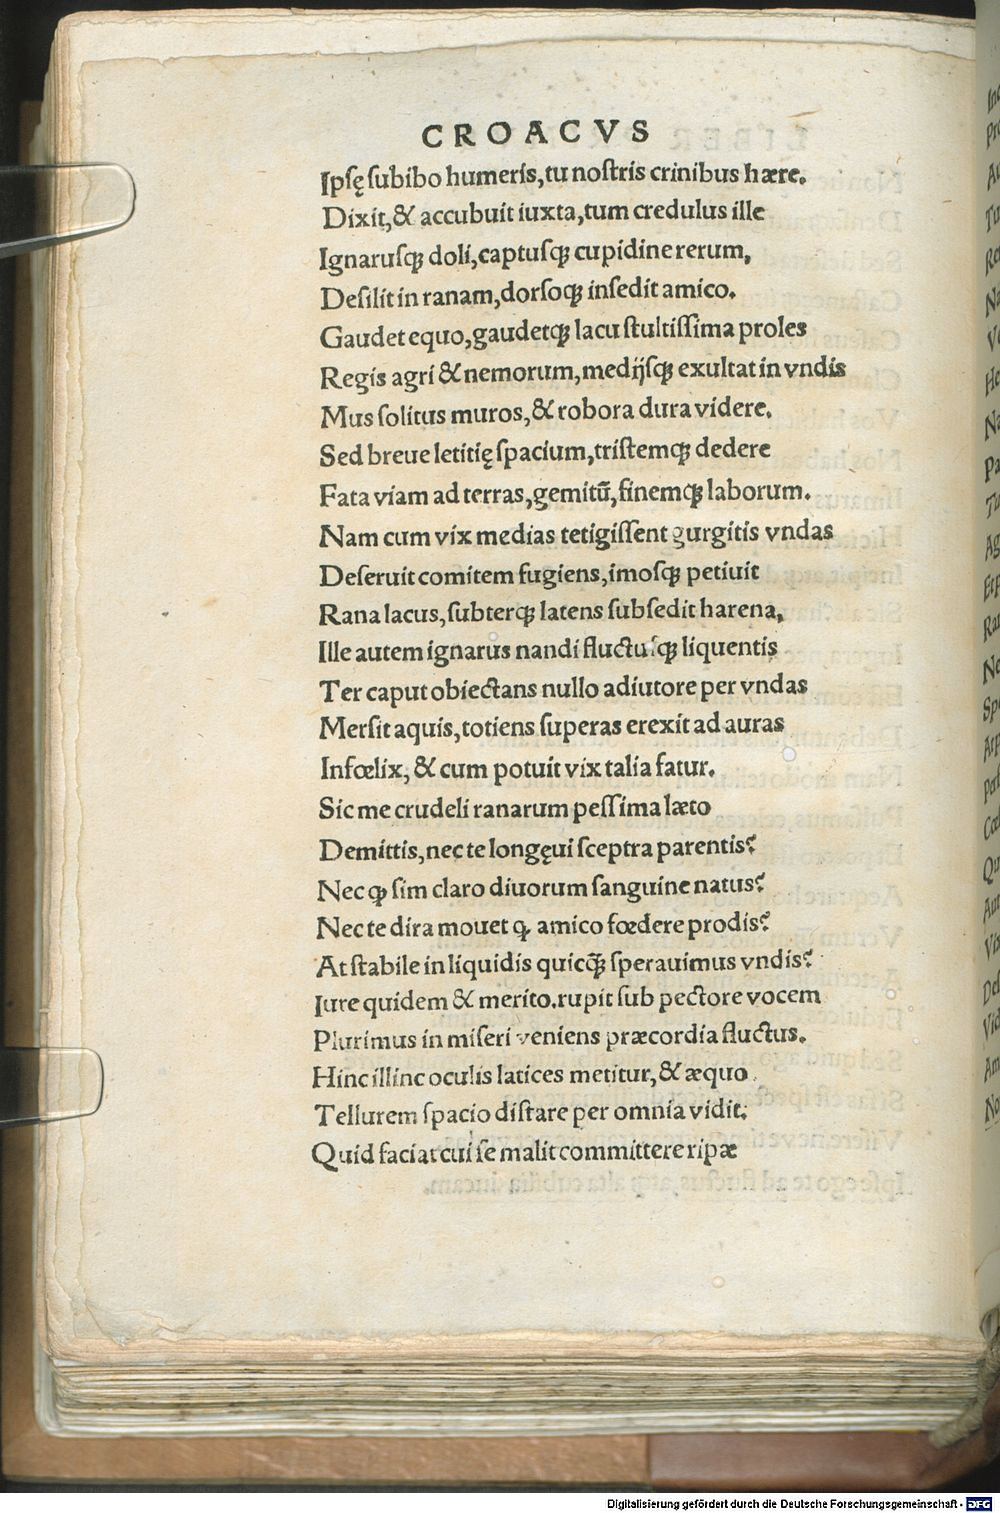 CROACVS
Ipsę ſubibo humeris, tu noſtris crinibus hære.
Dixit, & accubuit iuxta, tum credulus ille
Ignaruſqꝫ doli, captuſqꝫ cupidine rerum,
Deſilit in ranam, dorſoqꝫ inſedit amico.
Gaudet equo, gaudetqꝫ lacu ſtultiſſima proles
Regis agri & nemorum, medijſqꝫ exultat in vndis
Mus ſolitus muros, & robora dura videre.
Sed breue letitię ſpacium, triſtemqꝫ dedere
Fata viam ad terras, gemitū, finemqꝫ laborum.
Nam cum vix medias tetigiſſent gurgitis vndas
Deſeruit comitem fugiens, imoſqꝫ petiuit
Rana lacus, ſubterqꝫ latens ſubſedit harena,
Ille autem ignarus nandi fluctuſqꝫ liquentis
Ter caput obiectans nullo adiutore per vndas
Merſit aquis, totiens ſuperas erexit ad auras
Infœlix, & cum potuit vix talia fatur.
Sic me crudeli ranarum peſſima læto
Demittis, nec te longęui ſceptra parentis?
Nec ꝙ ſim claro diuorum ſanguine natus?
Nec te dira mouet q̨ amico fœdere prodis?
At ſtabile in liquidis quicq̄ꝫ ſperauimus vndis?
Iure quidem & merito. rupit ſub pectore vocem
Plurimus in miſeri veniens præcordia fluctus.
Hinc illinc oculis latices metitur, & æquo
Tellurem ſpacio diſtare per omnia vidit.
Quid faciat cui ſe malit committere ripæ
Digitalisierung gefördert durch die Deutsche Forschungsgemeinschaft - DFG